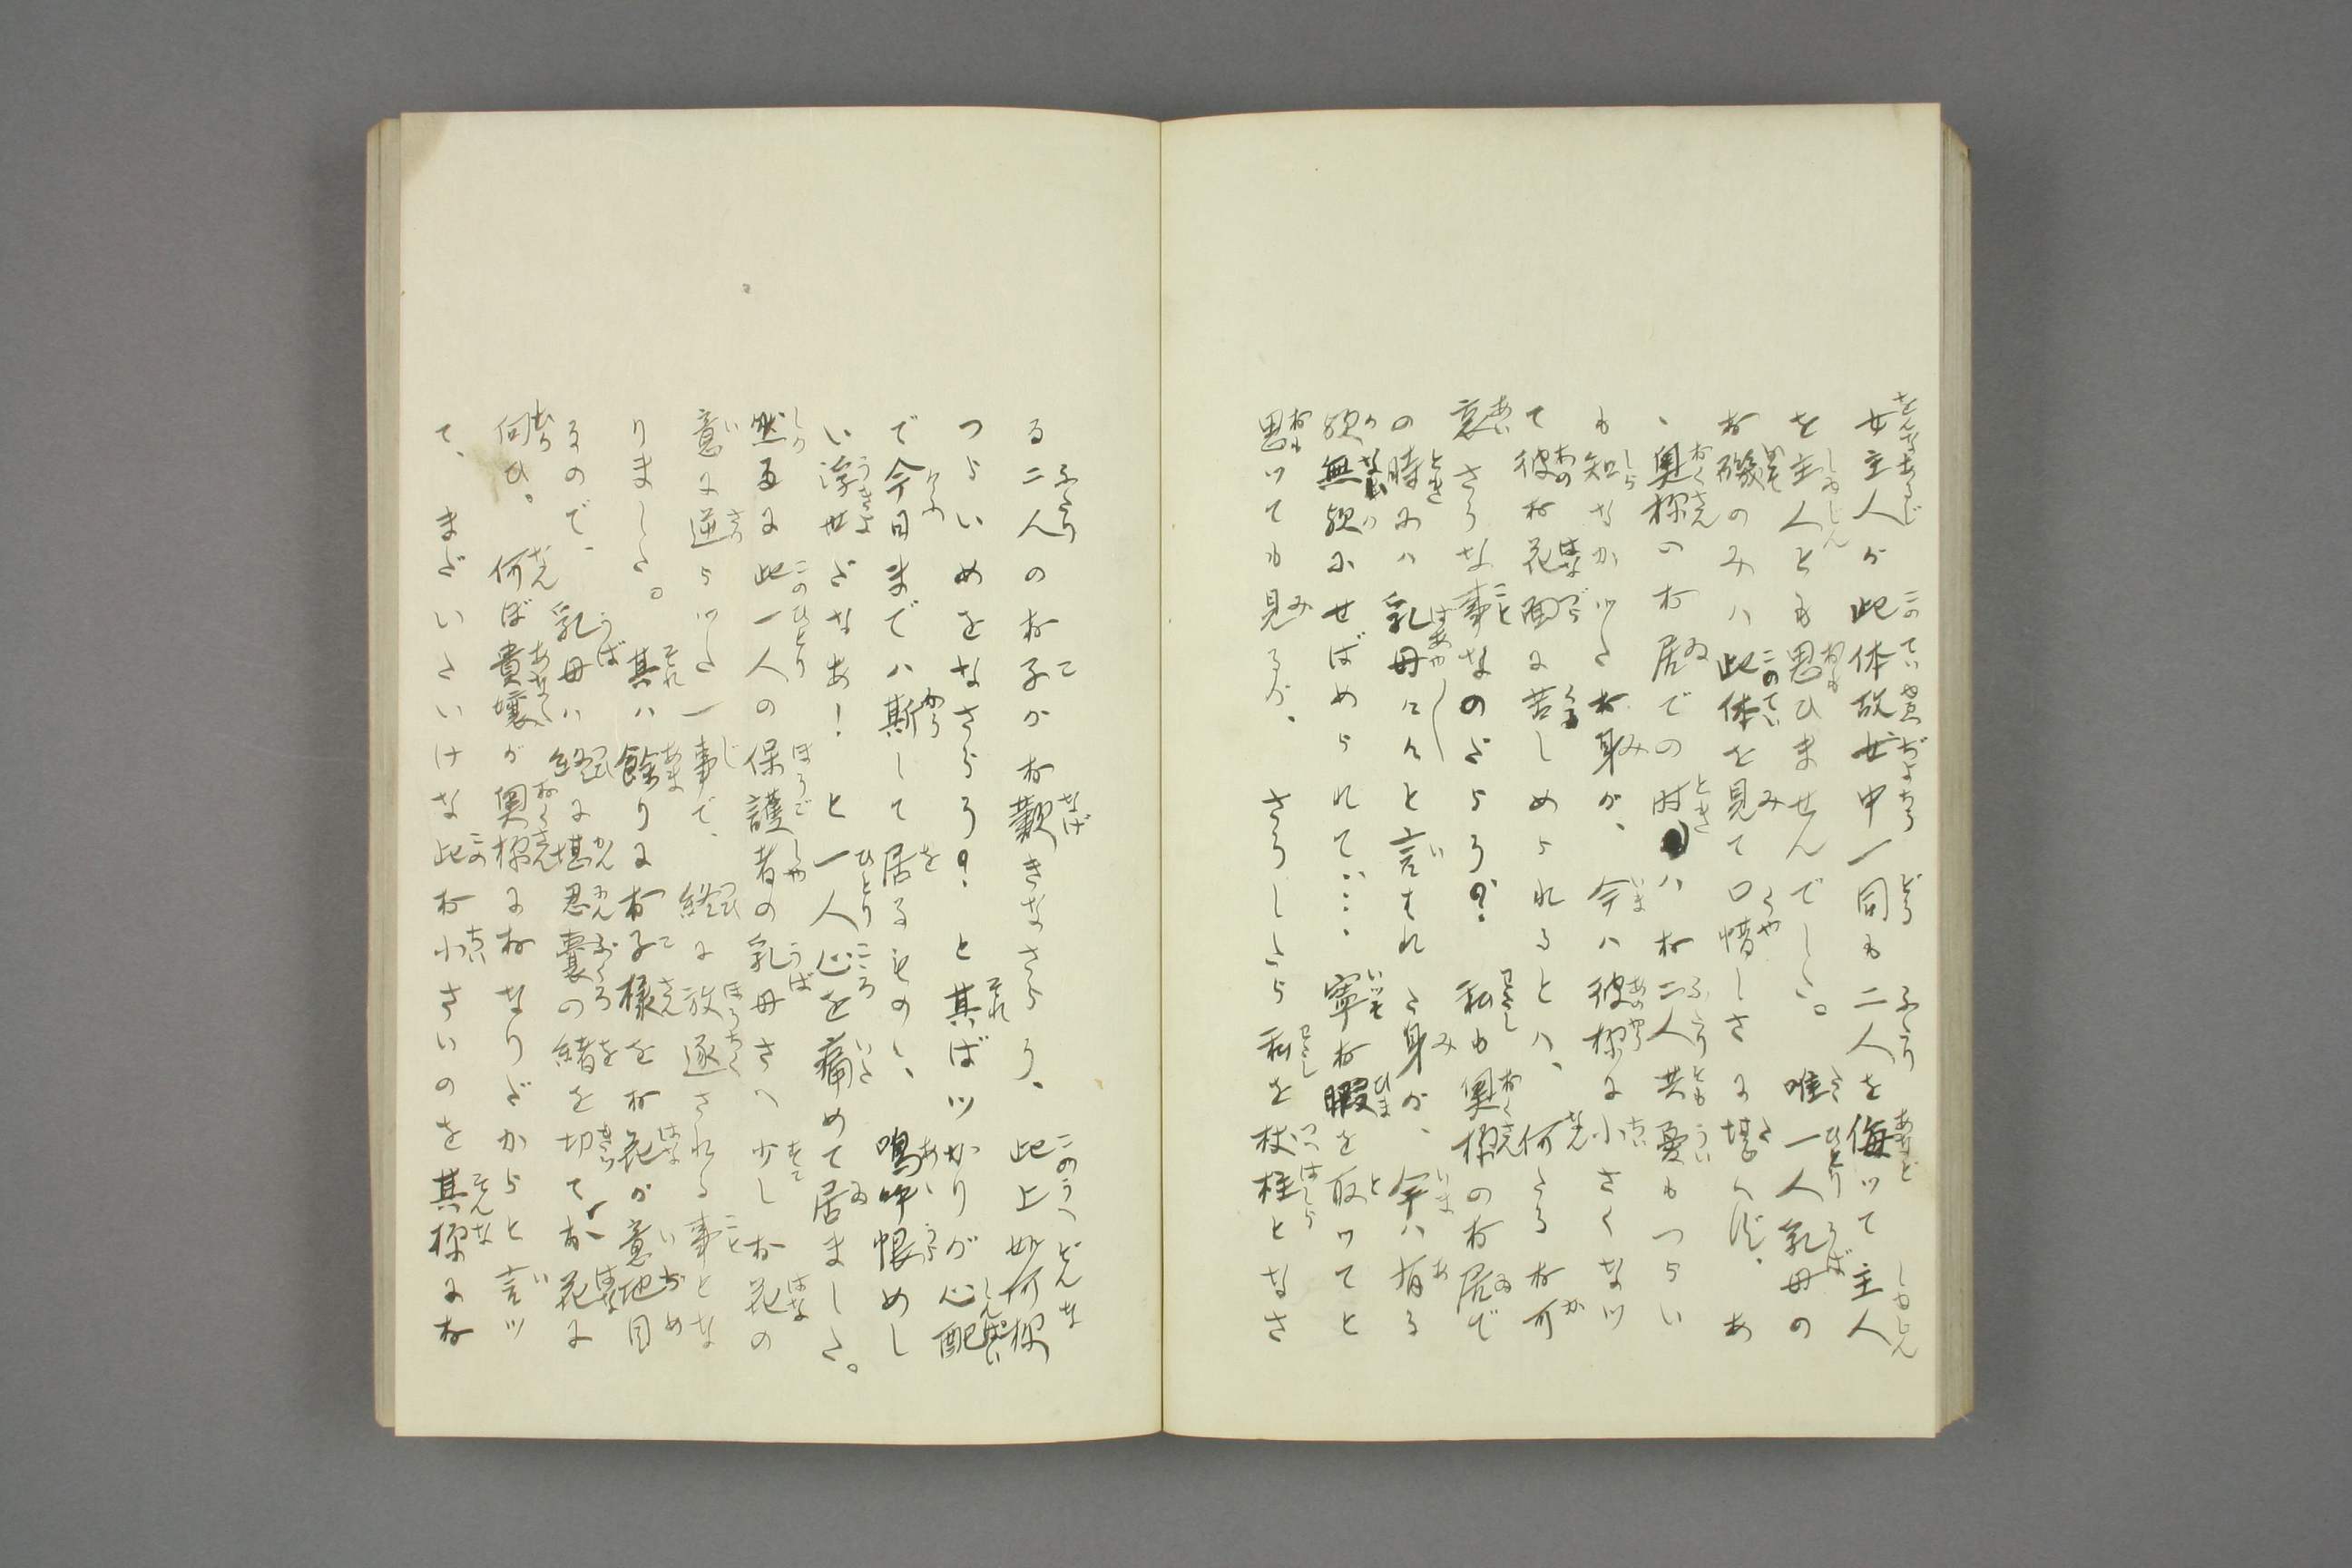 女主人が此体故女中一同も二人を侮ッて主人
を主人とも思ひませんでした。唯一人乳母の
お磯のみハ此体を見て口惜しさに堪へず、あ
、奥様のお居での時ハお二人共憂もつらい
も知なかッたお身が、今ハ彼様に小さくなッ
て彼お花面に苦しめられるとハ、何たるお可
哀さうな事なのだらう?私も奥様のお居で
の時にハ乳母や〱と言はれた身が、今ハ有る
か無かにせばめられて…寧お暇を取ッてと
思ッても見るが、さうしたら私を杖柱となさ
る二人のお子がお歎きなさらう、此上如何様
つらいめをなさらう?と其ばッかりが心配
で今日まで ハ斯して居るものゝ、嗚呼恨めし
い浮世だなあ!と一人心を痛めて居ました。
然るに此一人の保護者の乳母さへ少しお花の
意に逆らッた一事で、終に放逐される事とな
りました。其ハ餘りにお子様をお花が意地目
るので、乳母ハ終に堪忍嚢の緒を切て、お花に
向ひ。何ぼ貴嬢が奥様におなりだからと言ッ
て、まだいたいけな此お小さいのを其様にお